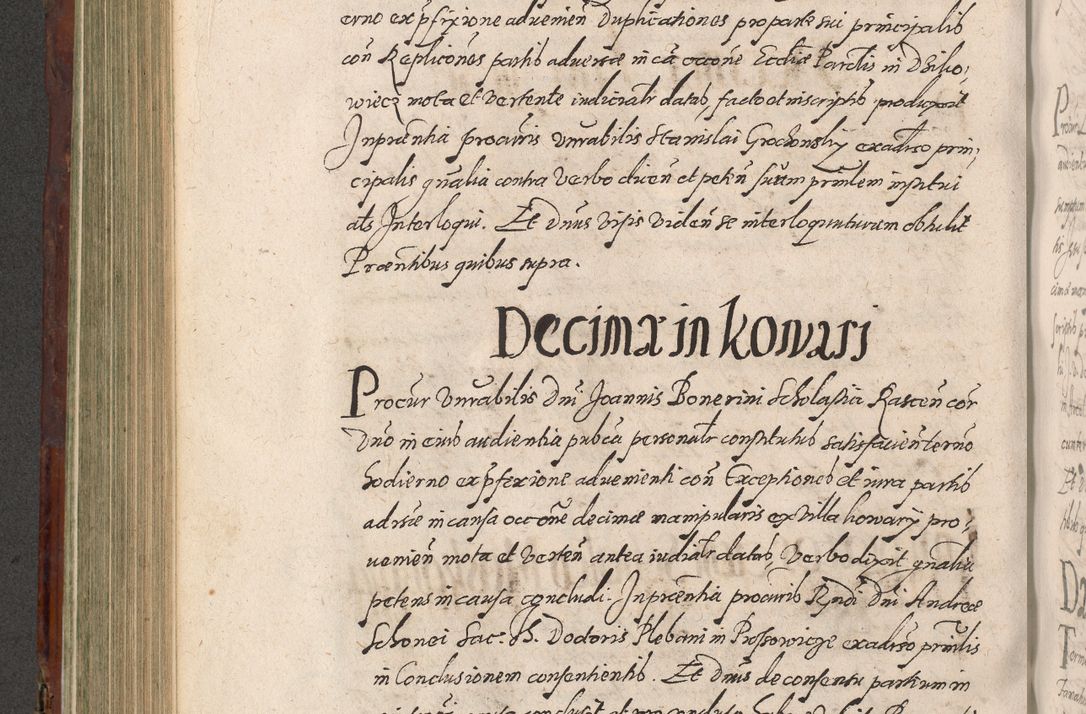 erno ex pfixione advenien Duplicationes pro parte sui principalis
con Replicones partis adversæ in ca occone Eccliæ Parclis in Dzilio,
wiecz mota et vertente indicialr datas, facto ot inscriptis produxit
In prentia procuris Vnrabilis Stanislai Grochonsky ex adiso prin,
cipalis gnalia contra Verbo dicen et peten suam prinlem institui
als Interloqui. Et Dnus visis viden se interloquuturum obtulit
Præntibus quibus supra.
Decimæ in Kowari
Procur Vnrabilis Dni Joannis Bonerini Scholastici Rascen cor
Dno in eius audientia pubca personalr constitutus satisfacien terno
hodierno ex pfexione advenienti con Exceptiones et iura partis
adrsæ in causa occone decimæ manipularis ex Villa kowary pro,
uenien mota et verten antea iudialr datas, Verbo dixit gnalia
petens in causa concludi. In præntia procuris Rndi Dni Andreæ
Schonei Sac. Th. Doctoris Plebani in Prossowicze ex adiso prinlis
in Conclusionem consentientis. Et Dnus de consensu partium in